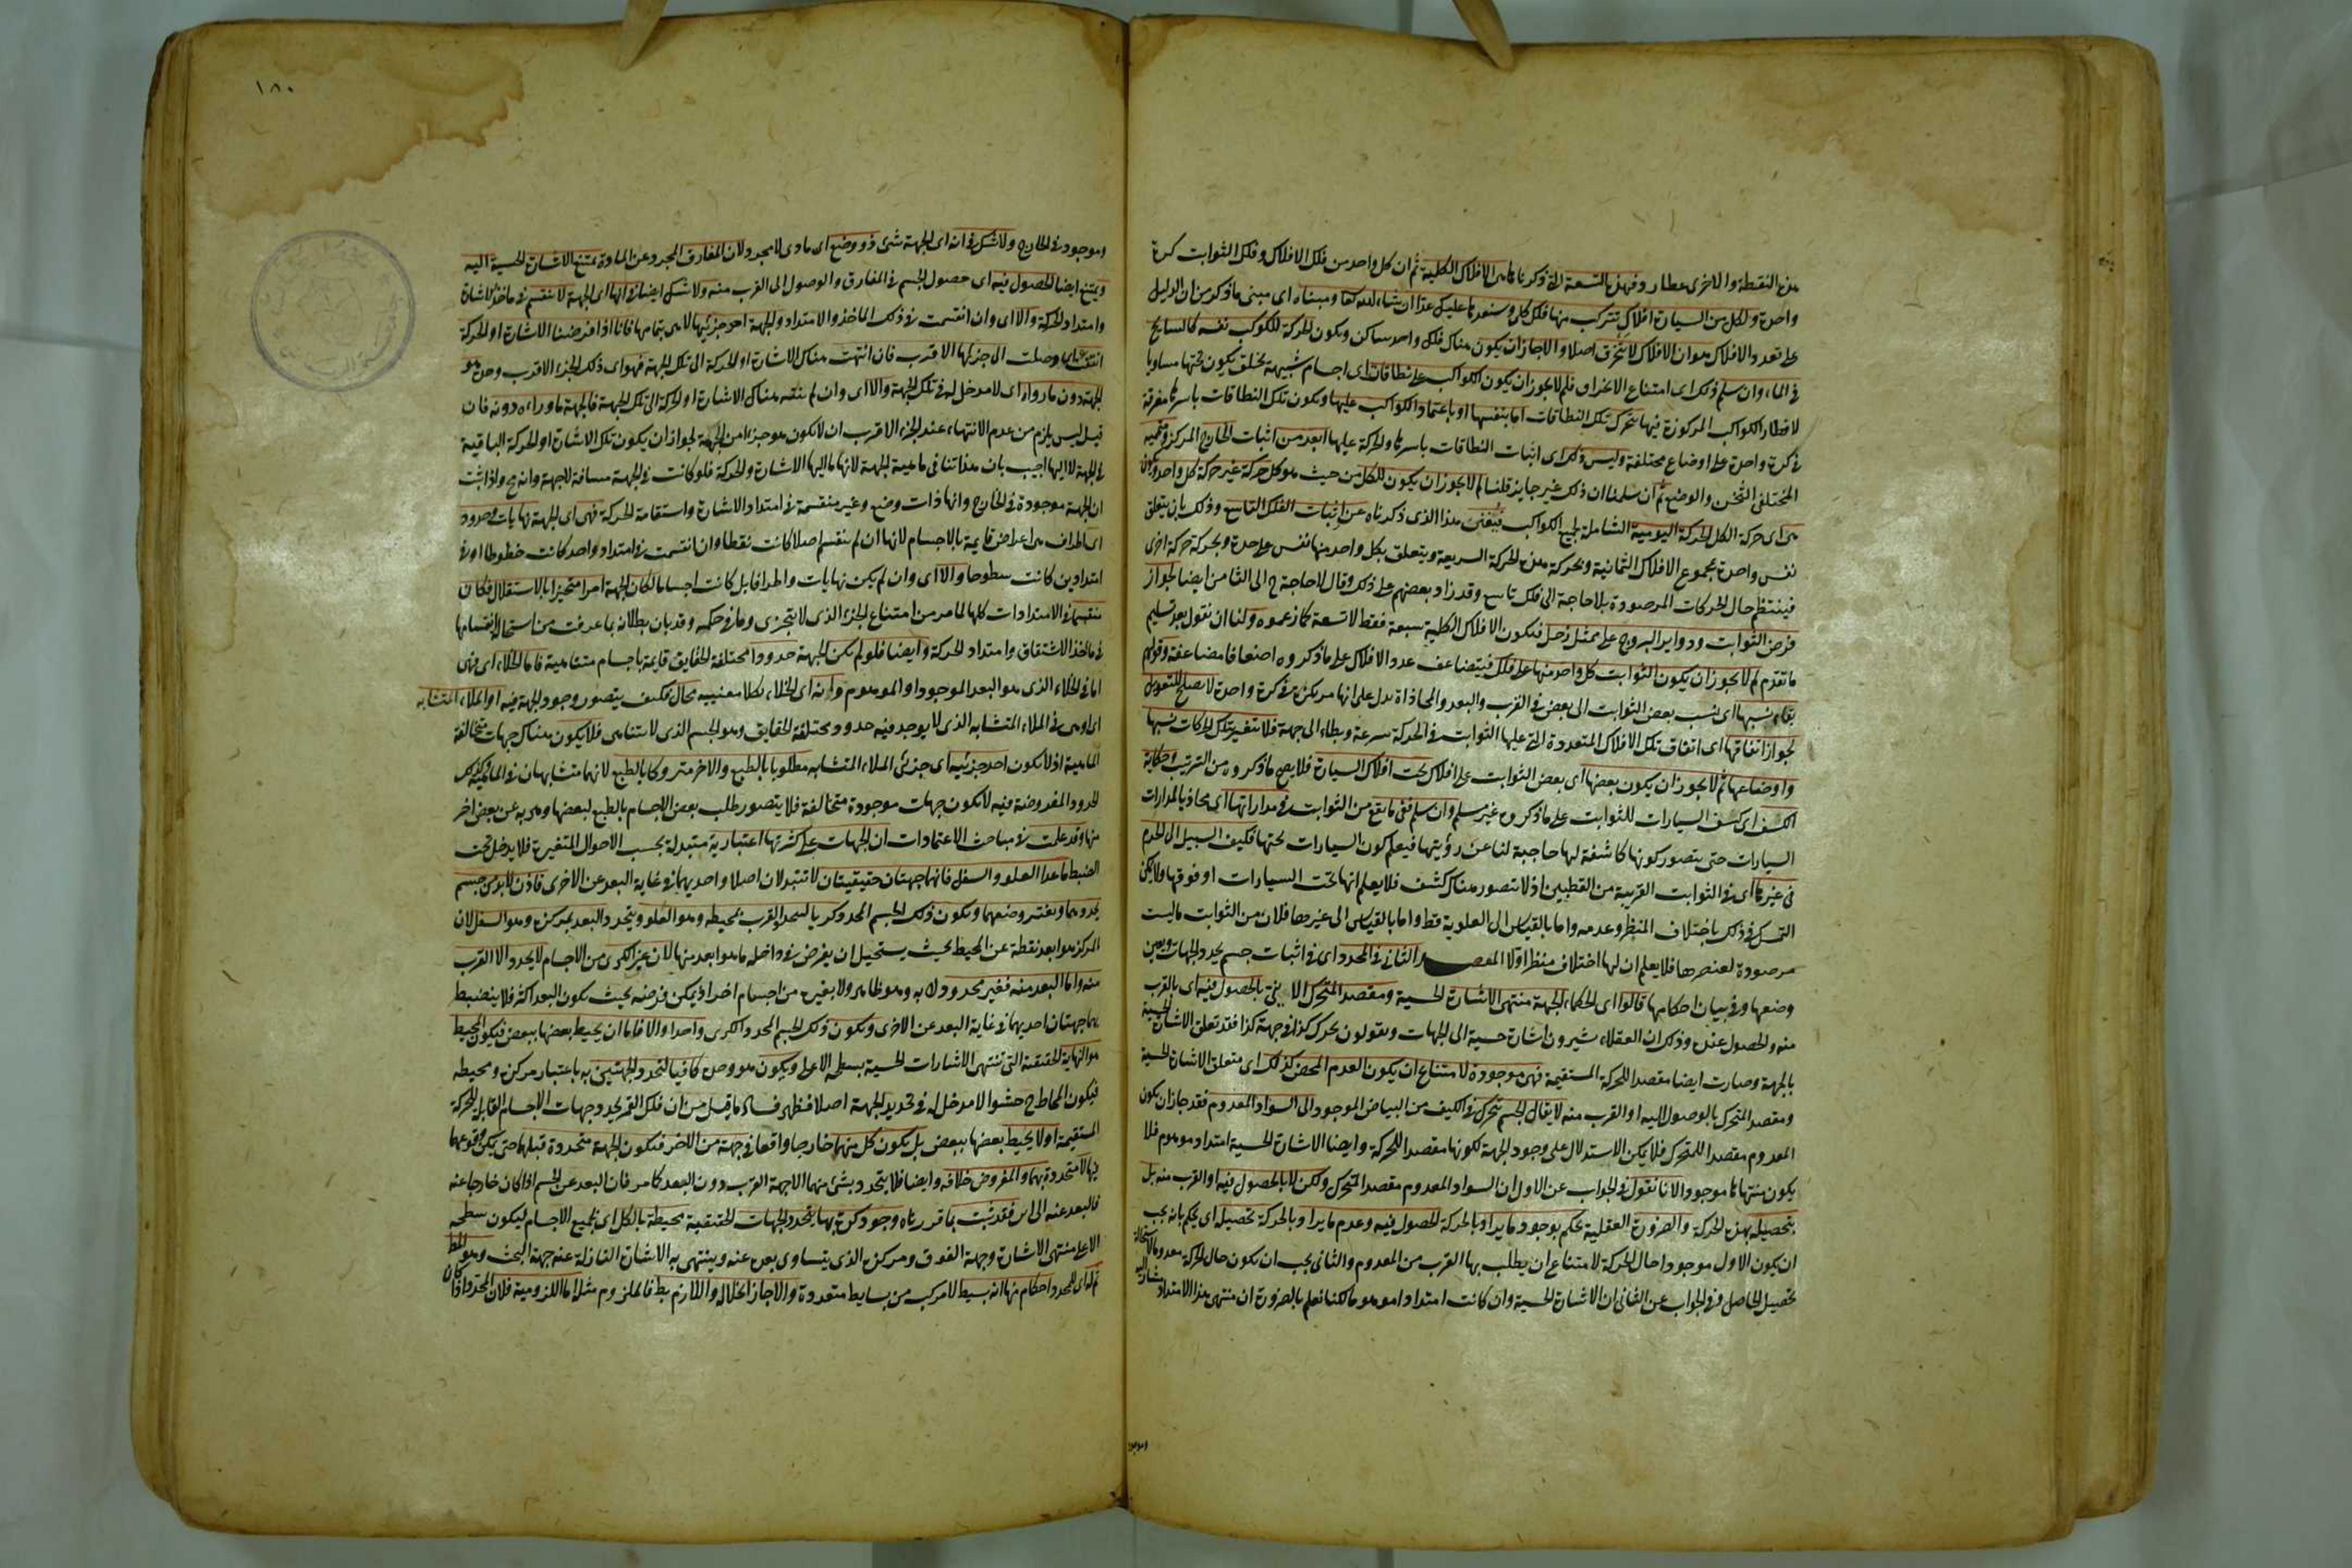 هذه النقطة والاخرى عطارد فهذه التسعة التى ذكرناها هى الافلاك الكلية ثم ان كل واحد من فلك الافلاك وفلك الثوابت كرة
واحدة ولكل من السيارة افلاك تتركب منها فلكه الكل وسنعدها عليك عدا ان شاء الله تعا ومبناه اى مبنى ما ذكر من ان الدليل
على تعدد الافلاك هو ان الافلاك لا تنخرق اصلا والا جاز ان يكون هناك فلك واحد ساكن ويكون الحركة للكوكب نفسه كالسابح
فى الماء وان سلم ذلك اى امتناع الانخراق فلم لا يجوز ان يكون الكواكب على نطاقات اى اجسام شبيهة بحلق يكون ثخنها مساويا
لاقطار الكواكب المركوزة فيها تتحرك تلك النطاقات اما بنفسها او باعتماد الكواكب عليها ويكون تلك النطاقات باسرها مغرقة
فى كرة واحدة على اوضاع مختلفة وليس ذلك اى اثبات النطاقات باسرها والحركة عليها ابعد من اثبات الخارج المركز ومتمميه
المختلفى الثخن والوضع ثم ان سلمنا ان ذلك غير جايز قلنا لم لا يجوز ان يكون للكل من حيث هو كل حركة غير حركة كل واحد ويكون
هى اى حركة الكل الحركة اليومية الشاملة لجميع الكواكب فيغنى هذا الذى ذكرناه عن اثبات الفلك التاسع وذلك بان يتعلق
نفس واحدة بمجموع الافلاك الثمانية وتحركه هذه الحركة السريعة ويتعلق بكل واحد منها نفس على حدة وتحركه حركة اخرى
فينتظم حال الحركات المرصودة بلا حاجة الى فلك تاسع وقد زاد بعضهم على ذلك وقال لا حاجة ح الى الثامن ايضا لجواز
فرض الثوابت ودواير البروج على ممثل زحل فتكون الافلاك الكلية سبعة فقط لا تسعة كما زعموه ولنا ان نقول بعد تسليم
ما تقدم لم لا يجوز ان يكون الثوابت كل واحد منها على فلك فيتضاعف عدد الافلاك على ما ذكروه اضعافا مضاعفة وقولهم
بقاء نسبها اى نسب بعض الثوابت الى بعض فى القرب والبعد والمحاذاة يدل على انها مركوزة فى كرة واحدة لا يصلح للتعويل
لجواز اتفاقها اى اتفاق تلك الافلاك المتعددة التى عليها الثوابت فى الحركة سرعة وبطاء الى جهة فلا تتغير بتلك الحركات نسبها
واوضاعها ثم لا يجوز ان يكون بعضها اى بعض الثوابت على افلاك تحت افلاك السيارة فلا يصح ما ذكروه من الترتيب وحكاية
الكسف اى كسف السيارات للثوابت على ما ذكروه غير مسلم وان سلم ففى ما يقع من الثوابت فى مداراتها اى محاذيا لمدارات
السيارات حتى يتصور كونها كاشفة لها حاجبة لنا عن رؤيتها فيعلم كون السيارات تحتها فكيف السبيل الى الجزم
فى غيرها اى فى الثوابت القريبة من القطبين اذ لا يتصور هناك كسف فلا يعلم انها تحت السيارات او فوقها ولا يمكن
التمسك فى ذلك باختلاف المنظر وعدمه واما بالقياس الى العلوية فقط واما بالقياس الى غيرها فلان من الثوابت ما ليست
مرصودة لعنصرها فلا يعلم ان لها اختلاف منظر اولا المقصد الثانى فى المحدد اى فى اثبات جسم يحدد الجهات ويعين
وضعها وفى بيان احكامها قالوا اى الحكماء الجهة منتهى الاشارة الحسية ومقصد المتحرك الاينى بالحصول فيه اى بالقرب
منه والحصول عنده وذلك ان العقلاء يشيرون اشارة حسية الى الجهات ويقولون تحرك كذا فى جهة كذا فقد تعلق الاشارة الحسية
بالجهة وصارت ايضا مقصدا للحركة المستقيمة فهى موجودة لامتناع ان يكون العدم المحض كذلك اى متعلق الاشارة الحسية
ومقصد المتحرك بالوصول اليه او القرب منه لا يقال الجسم يتحرك فى الكيف من البياض الموجود الى السواد المعدوم فقد جاز ان يكون
المعدوم مقصدا للمتحرك فلا يمكن الاستدلال على وجود الجهة لكونها مقصدا للحركة وايضا الاشارة الحسية امتداد موهوم فلا
يكون منتهاها موجودا لانا نقول فى الجواب عن الاول ان السواد المعدوم مقصد المتحرك ولكن لا بالحصول فيه او القرب منه بل
بتحصيله بهذه الحركة والضرورة العقلية تحكم بوجود ما يراد بالحركة الحصول فيه وعدم ما يراد بالحركة تحصيله اى يحكم بانه يجب
ان يكون الاول موجودا حال الحركة لامتناع ان يطلب بها القرب من المعدوم والثانى يجب ان يكون حال الحركة معدوما لاستحالة
تحصيل الحاصل وفى الجواب عن الثانى ان الاشارة الحسية وان كانت امتدادا موهوما لكنا نعلم بالضرورة ان منتهى هذا الامتداد مشار اليه
وموجود
١٨٠
وموجود فى الخارج ولا شك فى انه اى الجهة شئ ذو وضع اى مادى لا مجرد لان المفارق المجرد عن المادة يمتنع الاشارة الحسية اليه
ويمتنع ايضا الحصول فيه اى حصول الجسم فى المفارق والوصول الى القرب منه ولا شك ايضا فى انها اى الجهة لا تنقسم فى ماخذ الاشارة
وامتداد الحركة والا اى وان انقسمت فى ذلك الماخذ والامتداد فالجهة احد جزئيها لا هى بتمامها فانا اذا فرضنا الاشارة او الحركة
وصلت الى جزئها الاقرب فان انتهت هناك الاشارة او الحركة الى تلك الجهة فهو اى ذلك الجزء الاقرب وحده هو
الجهة دون ما وراه اى لا مدخل له فى تلك الجهة والا اى وان لم ينته هناك الاشارة او الحركة الى تلك الجهة فالجهة ما وراءه دونه فان
قيل ليس يلزم من عدم الانتهاء عند الجزء الاقرب ان لا يكون هو جزءا من الجهة لجواز ان يكون تلك الاشارة او الحركة الباقية
فى الجهة لا اليها اجيب بان هذا تنافى ماهية الجهة لانها ما اليها الاشارة والحركة فلو كانت فى الجهة مسافة لا جهة وانه مح واذا ثبت
ان الجهة موجودة فى الخارج وانها ذات وضع وغير منقسمة فى امتداد الاشارة واستقامة الحركة فهى اى الجهة نهايات وحدود
اى اطراف هى اعراض قايمة بالاجسام لانها ان لم تنقسم اصلا كانت نقطا وان انقسمت فى امتداد واحد كانت خطوطا او فى
امتدادين كانت سطوحا والا اى وان لم يكن نهايات واطرافا بل كانت اجساما لكان الجهة امرا متحيزا بالاستقلال فكان
منقسما فى الامتدادات كلها لما مر من امتناع الجزء الذى لا يتجزى وما فى حكمه وقد بان بطلانه بما عرفت من استحالة انقسامها
فى ماخذ الاشتقاق وامتداد الحركة وايضا فلو لم تكن الجهة حدودا مختلفة الحقايق قايمة باجسام متناهية فاما الخلاء اى فهى
اما فى الخلاء الذى هو البعد الموجود او الموهوم وانه اى الخلاء بكلا معنييه محال فكيف يتصور وجود الجهة فيه او الملاء المتشابه
اى او هى فى الملاء المتشابه الذى لا يوجد فيه حدود مختلفة الحقايق وهو الجسم الذى لا يتناهى فلا يكون هناك جهات متخالفة
الماهية اذ لا يكون احد جزئيه اى جزئى الملاء المتشابه مطلوبا بالطبع والاخر متروكا بالطبع لانهما متشابهان فى الماهية فكذلك
الحدود المفروضة فيه لا تكون جهات موجودة متخالفة فلا يتصور طلب بعض الاجسام بالطبع لبعضها وهربه عن بعض اخر
منها وقد علمت فى مباحث الاعتمادات ان الجهات على كثرتها اعتبارية متبدلة بحسب الاحوال المتغيرة فلا يدخل تحت
الضبط ما عدا العلو والسفل فانهما جهتان حقيقيتان لا تتبدلان اصلا واحديهما فى غاية البعد عن الاخرى فاذن لا بد من جسم
يحددهما ويعتبر وضعهما ويكون ذلك الجسم المحدد كريا ليتحدد القرب بمحيطه وهو العلو ويتحدد البعد بمركزه وهو السفل لان
المركز هو ابعد نقطة عن المحيط بحيث يستحيل ان يفرض فى داخله ما هو ابعد منها لان غير الكرى من الاجسام لا يحدد الا القرب
منه واما البعد منه فغير محدود لا به وهو ظاهر ولا بغيره من اجسام اخر اذ يمكن فرضه بحيث يكون البعد اكثر فلا ينضبط
بها جهتان احديهما فى غاية البعد عن الاخرى ويكون ذلك الجسم المحدد الكرى واحدا والا فاما ان يحيط بعضها ببعض فيكون المحيط
هو النهاية الحقيقية التى تنتهى الاشارات الحسية بسطحه الاعلى ويكون هو وحده كافيا لتحدد الجهتين به باعتبار مركزه ومحيطه
فيكون المحاط ح حشوا لا مدخل له فى تحديد الجهة اصلا فظهر فساد ما قيل من ان فلك القمر يحدد جهات الاجسام القابلة للحركة
المستقيمة او لا يحيط بعضها ببعض بل يكون كل منهما خارجا واقعا فى جهة من الاخر فتكون الجهة متحددة قبلهما حتى يمكن وقوعهما
فيها لا متحددة بهما والمفروض خلافه وايضا فلا يتحدد بشئ منهما الا جهة القرب دون البعد كما مر فان البعد عن الجسم اذا كان خارجا عنه
فالبعد عنه الى اين فقد ثبت بما قررناه وجود كرة بها يتحدد الجهات الحقيقية محيطة بالكل اى بجميع الاجسام ليكون سطحه
الاعلى منتهى الاشارة وجهة الفوق ومركزه الذى يتساوى بعده عنه وينتهى به الاشارة النازلة عنه جهة التحت وهو المط
ثم له اى للمحدد احكام منها انه بسيط لا مركب من بسايط متعددة والا جاز انحلاله واللازم بط فالملزوم مثله اما اللزومية فلان المحدد اذا كان